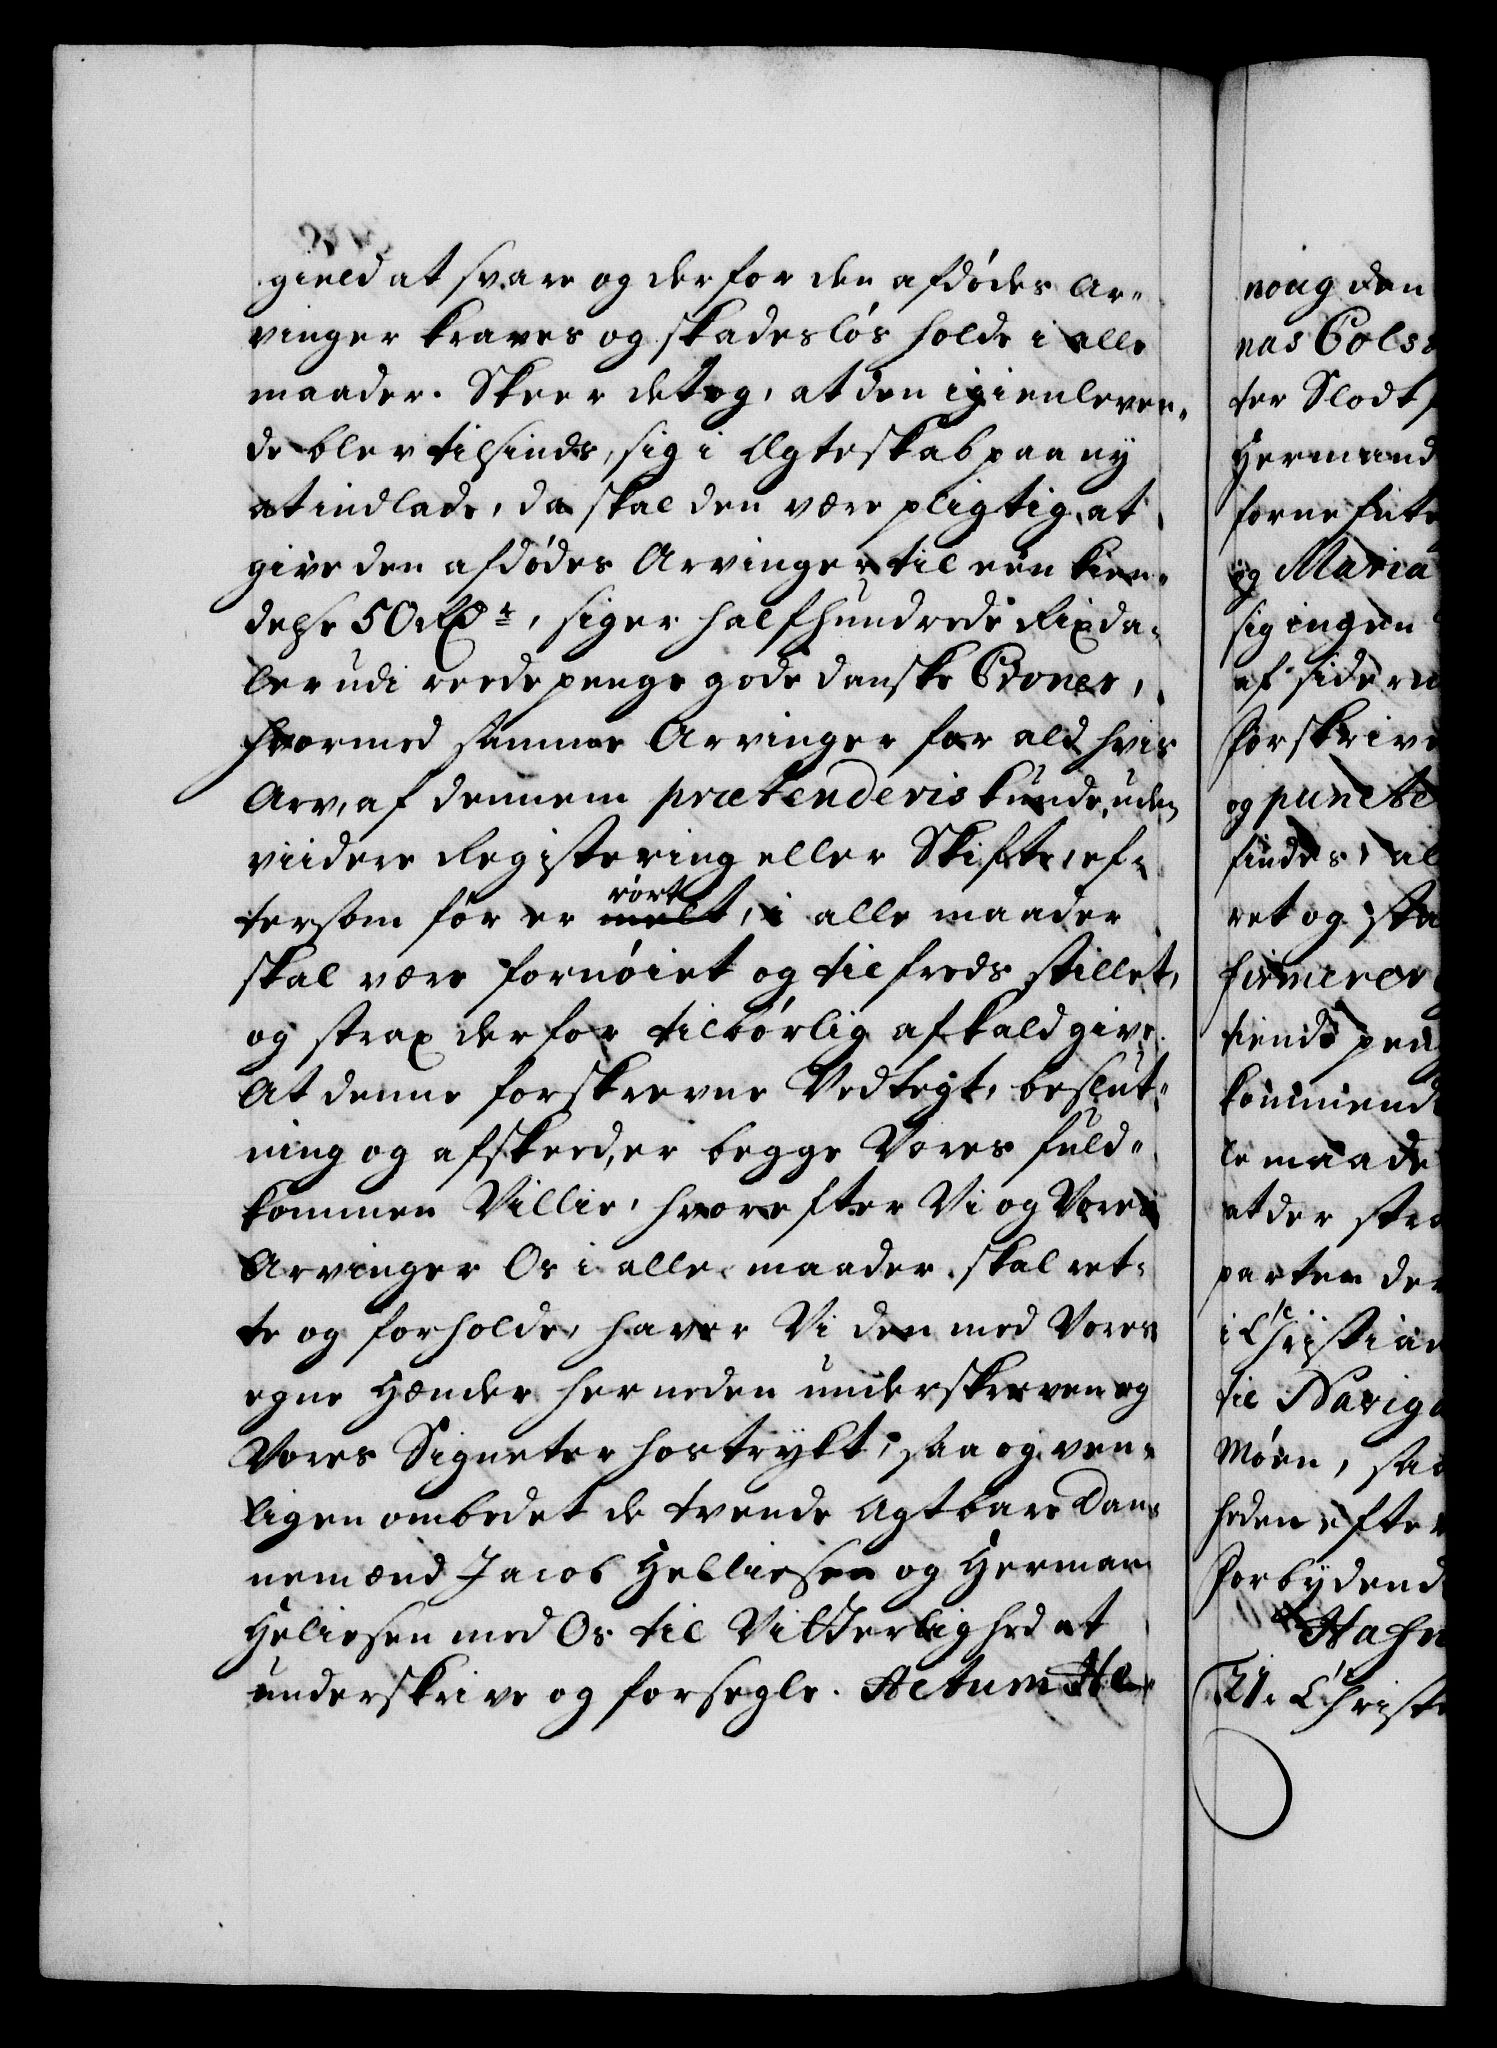 gield at svare og derfor den afdødes Ar-
vinger kraves og skadesløs holde i alle
maader. Skeer det og, at den igienleven-
de blev tilsinds, sig i Ægteskab paa ny
at indlade, da skal den være pligtig, at
give den afdødes Arvinger til een kien-
delse 50 Rdr, siger halfhundrede Rixda-
ler udi reede penge gode danske Croner,
hvormed samme Arvinger for ald hvis
Arv, af dennem prætenderis kunde, uden
viidere Registering eller Skifte, ef-
tersom før er melt rørt, i alle maader
skal være fornøiet og tilfreds stillet,
og strax derfor tilbørlig afkald give.
At denne forskrevne Vedtegt, beslut-
ning og afskeed, er begge Vores fuld-
kommen Villie, hvorefter Vi og Vore
Arvinger Os i alle maader skal ret-
te og forholde, haver Vi den med Vores
egne Hænder her neden underskreven og
Vores Signeter hostrykt, saa og ven-
ligen ombedet de tvende Agtbare Dan-
nemænd Jacob Helliesen og Herman
Heliesen med Os til Vitterlighed at
underskrive og forsegle. Actum Hle-
nøug den
nas Colss
ter Slodt
Hermand
forne
og Maria
sig ingen
af side
Forskriv
og puncte
findes, al
ret og sta
firmerer
tiende
kommend
le maade
at der stra
parten der
i Christian
til Navig
Møen, saa
heden efter
Forbydend
Hafn
R. Christ